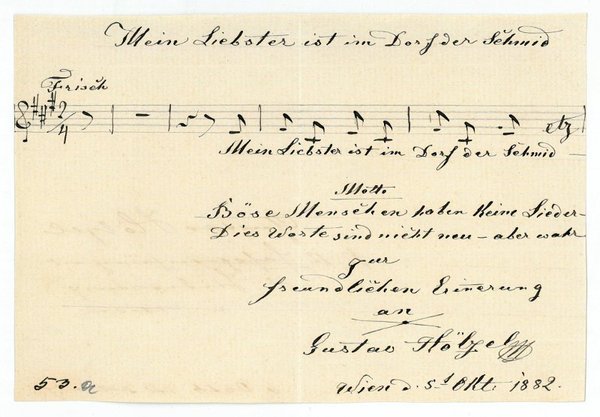 Mein Liebster ist im Dorf der Schmid
Frisch
2/4
etz
Mein Liebster ist im Dorf der Schmid —
Motto
Böse Menschen haben keine Lieder –
Dies Worte sind nicht neu – aber wahr
zur
freundlichen Erinerung
an
Gustav Hölzel
Wien d. 5t Okt. 1882.
53. a